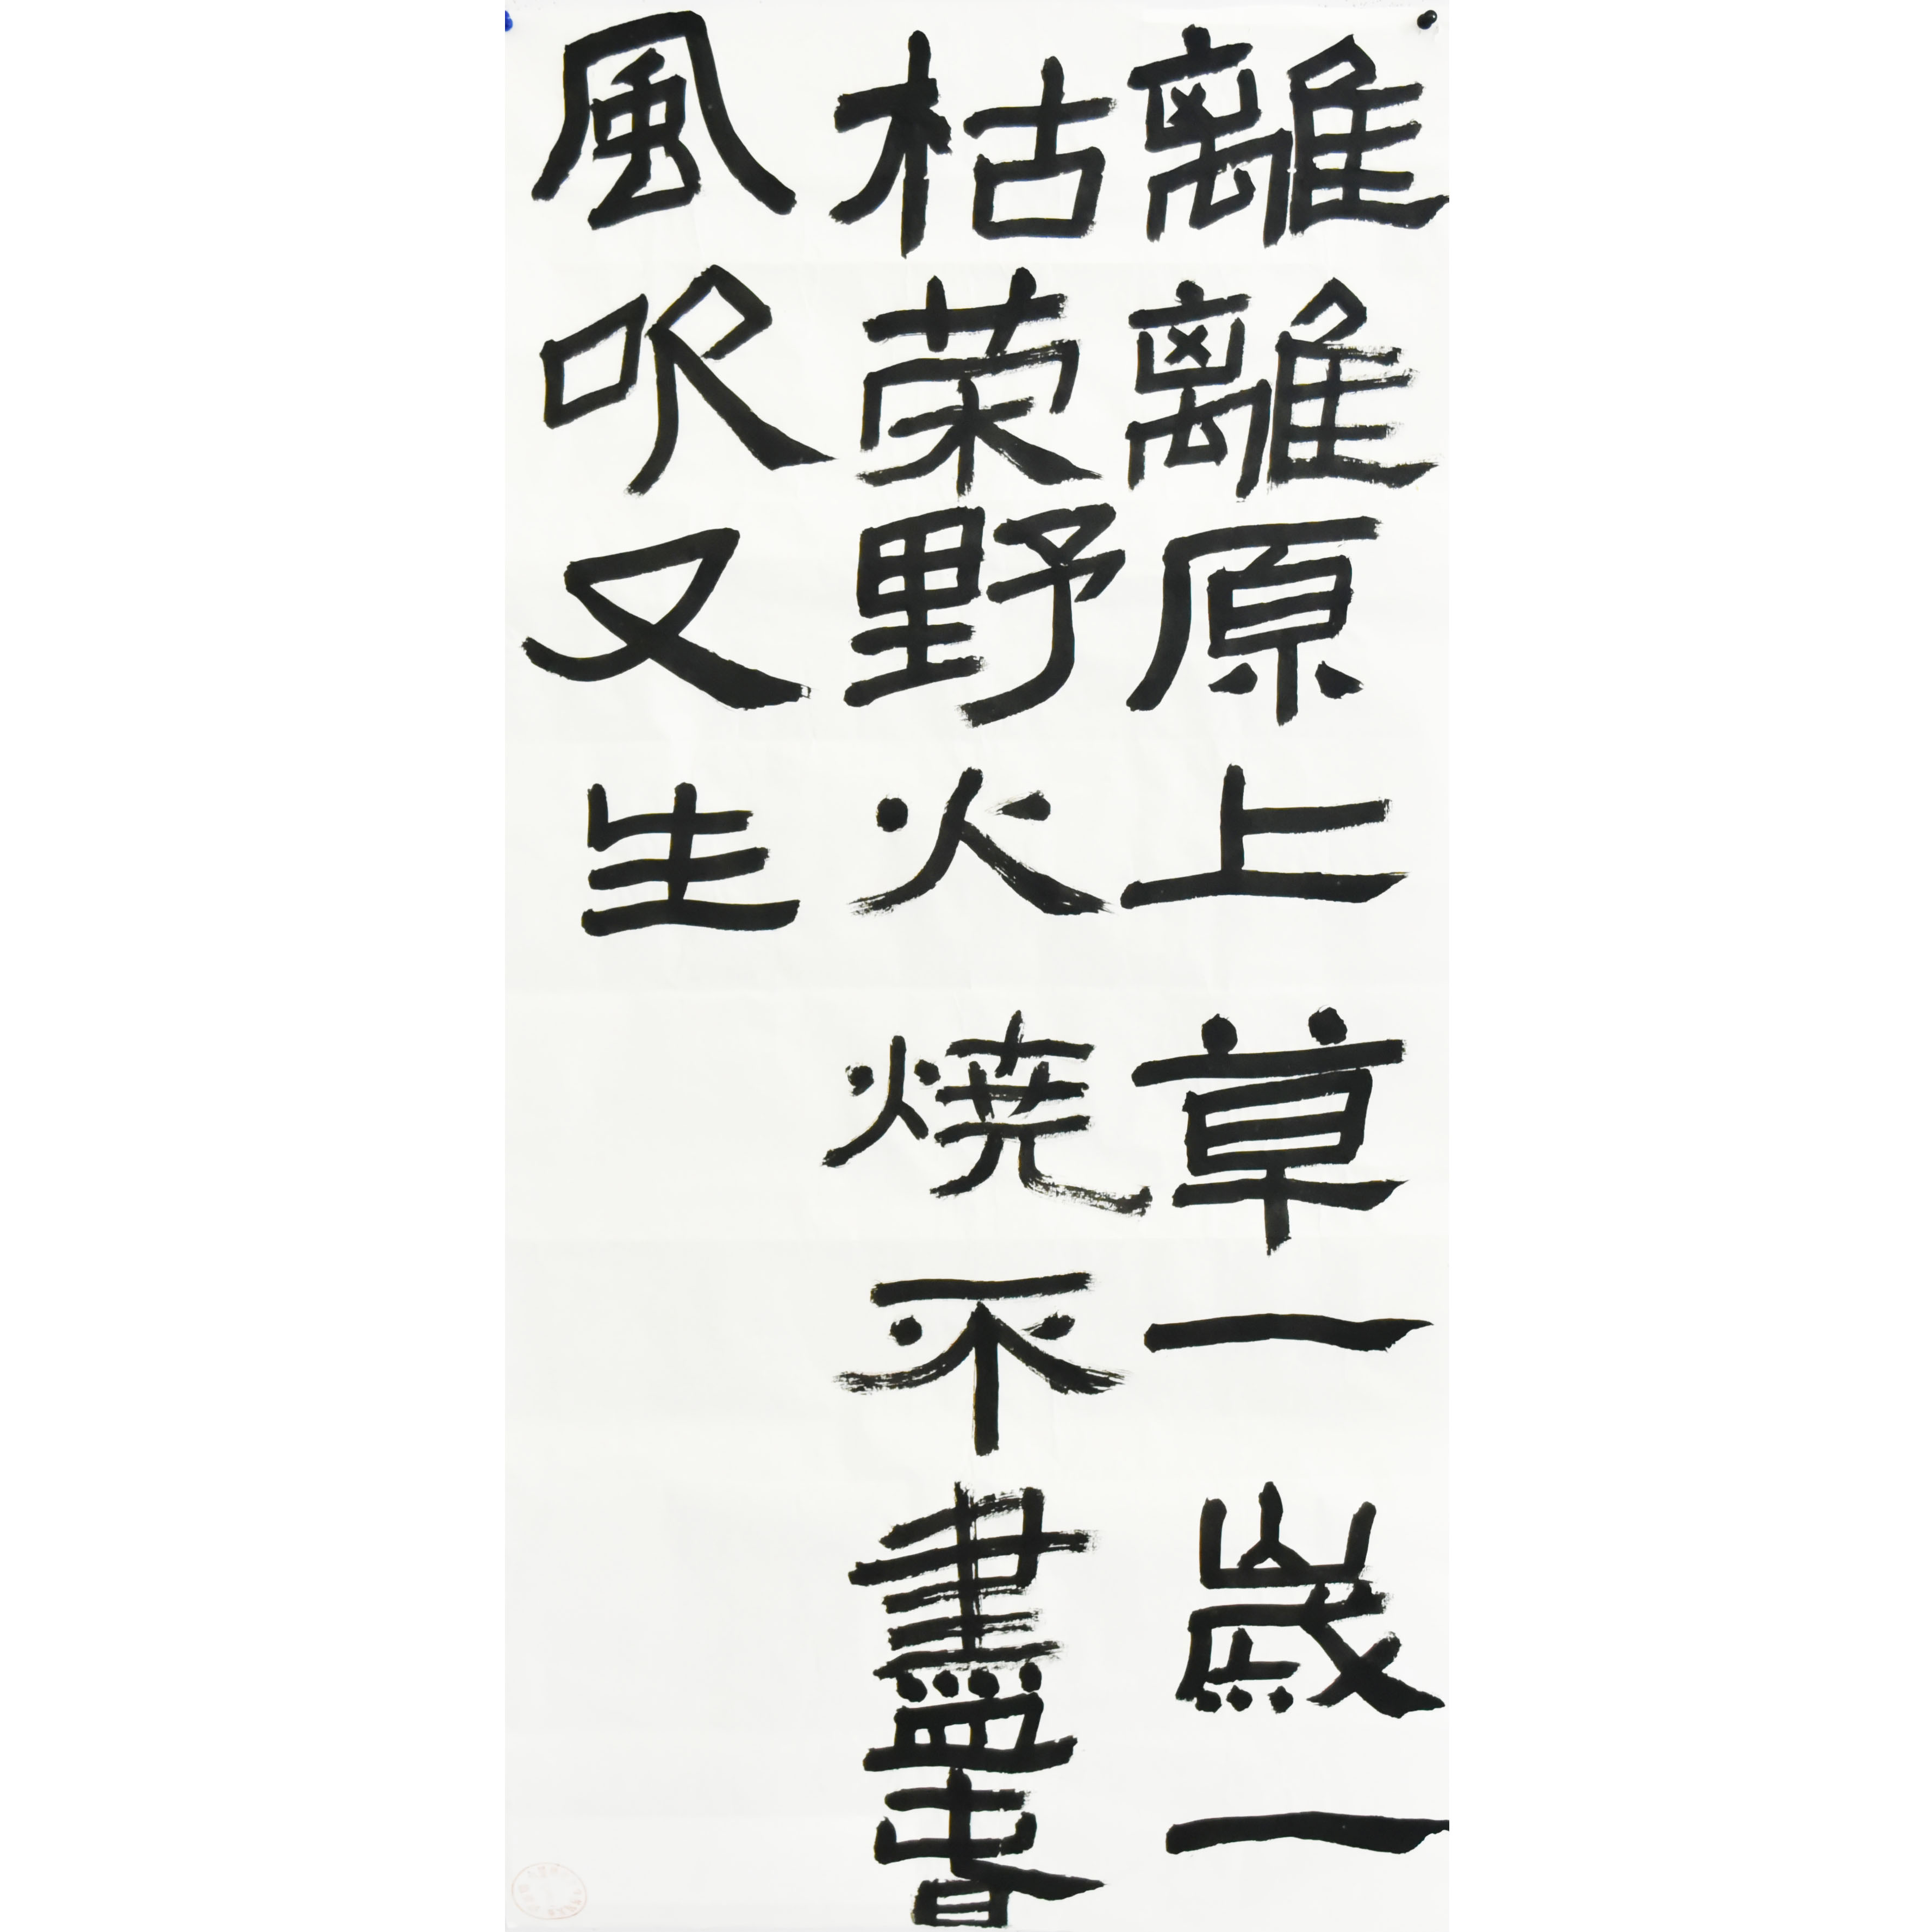 離離原上草一歲一
枯荣野火焼不盡春
風吹又生